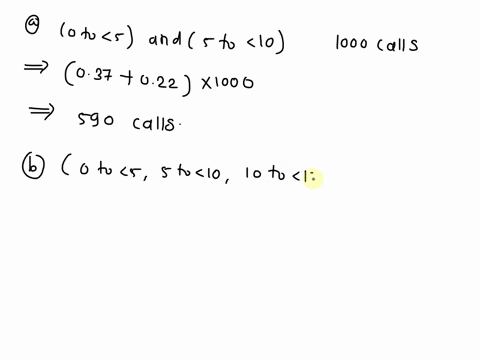 (a) (0 to <5) and (5 to <10) 1000 calls
⇒ (0.37 + 0.22) × 1000
⇒ 590 calls.
(b) ( 0 to <5, 5 to <10, 10 to <1